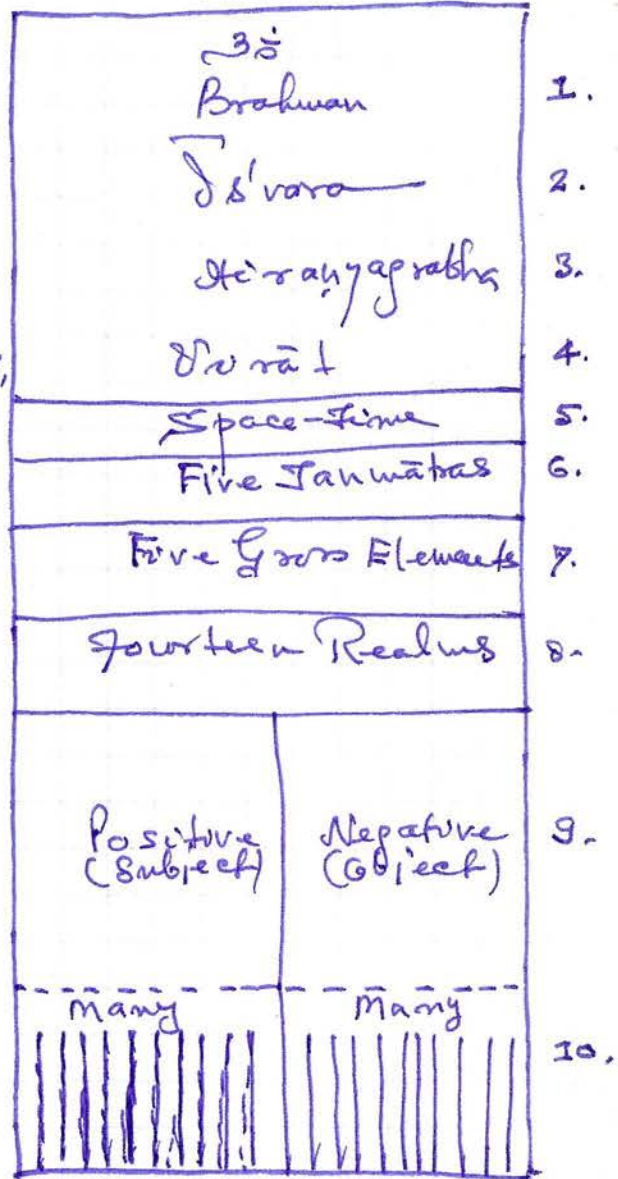 ॐ
Brahman 1.
Īs'vara 2.
Hiraṇyagrabha 3.
Virāt 4.
Space-Time 5.
Five Tanmātras 6.
Five Gross Elements 7.
Fourteen Realms 8.
Positive Negative 9.
(Subject) (Object)
Many Many
10.